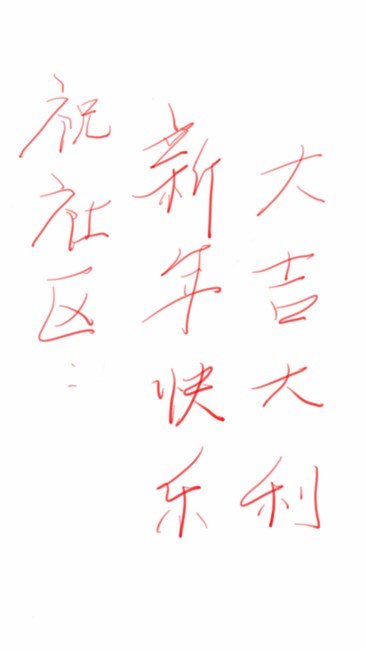 祝社区：
新年快乐
大吉大利